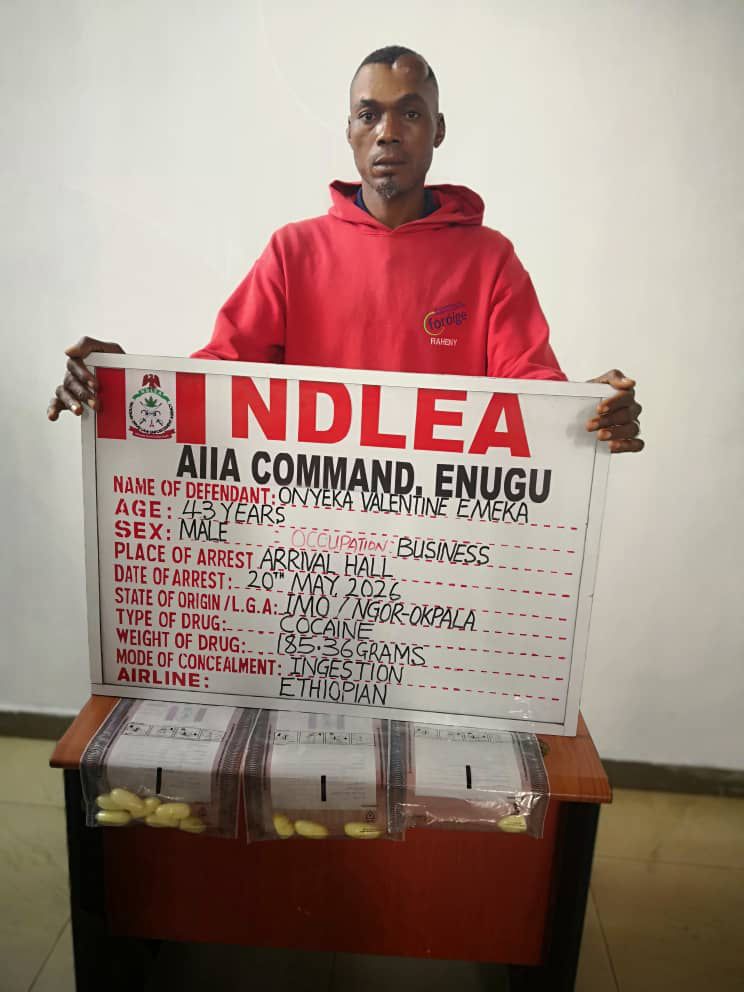 foroige
RAHENY
NDLEA
NDLEA
AIIA COMMAND, ENUGU
NAME OF DEFENDANT: ONYEKA VALENTINE EMEKA
AGE: 43 YEARS
SEX: MALE OCCUPATION: BUSINESS
PLACE OF ARREST ARRIVAL HALL
DATE OF ARREST: 20TH MAY, 2026
STATE OF ORIGIN/L.G.A: IMO / NGOR-OKPALA
TYPE OF DRUG: COCAINE
WEIGHT OF DRUG: 185.36GRAMS
MODE OF CONCEALMENT: INGESTION
AIRLINE: ETHIOPIAN